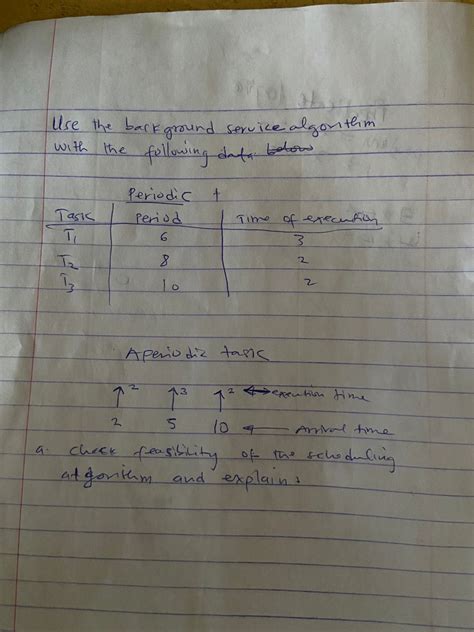 Use the background service algorithm
with the following data
Periodic t
Task Period Time of execution
T1 6 3
T2 8 2
T3 10 2
Aperiodic task
↑2 ↑3 ↑2 ↔ execution time
2 5 10 ← Arrival time
a. check feasibility of the scheduling
algorithm and explain.